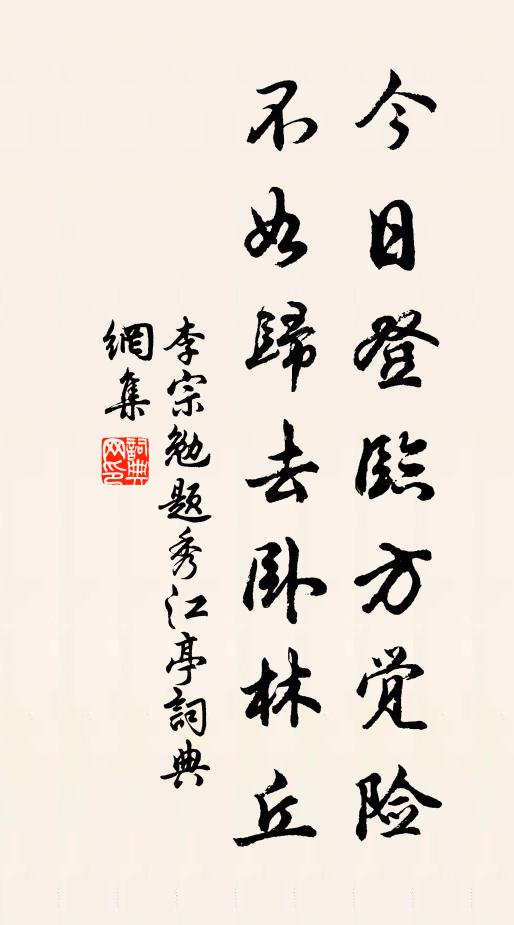 今日登臨方觉险
不如歸去卧林丘
李宗勉题秀江亭詞典
網集
詞典网印